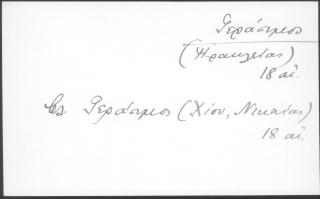 Γεράσιμος
(Ἡρακλείας)
18 αἰ.
Βλ. Γεράσιμος (Χίου, Νικαίας)
18 αἰ.